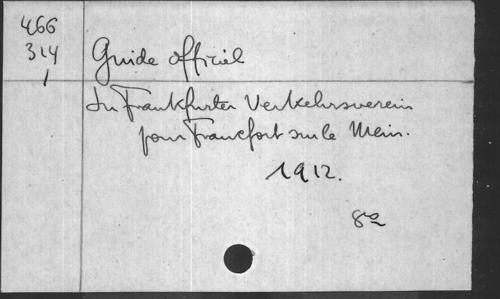 466
314
/
Guide officiel
du Frankfurter Verkehrsverein
pour Francfort sur le Mein.
1912.
8º